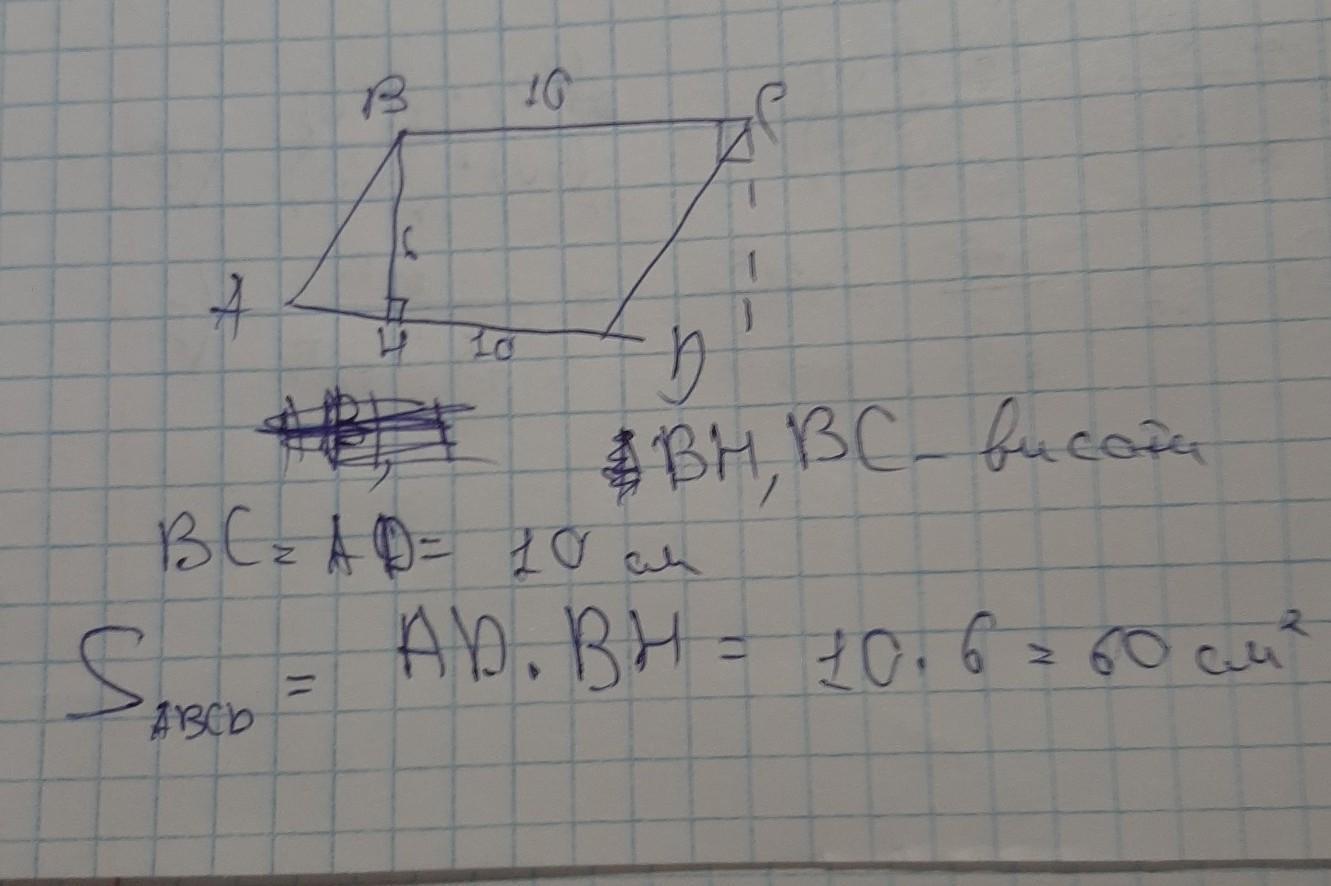 B 10 C
6
A H 10 D
BH, BC - висоти
BC = AD = 10 см
S ABCD = AD · BH = 10 · 6 = 60 см²